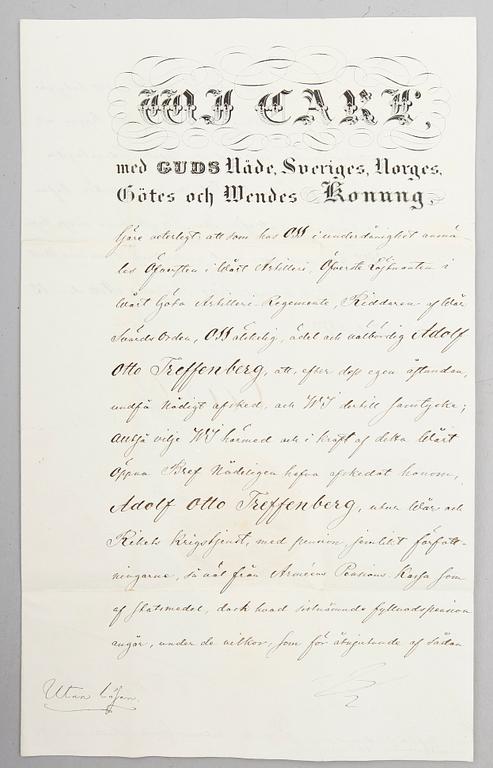 WJ CARL,
med GUDS Nåde, Sveriges, Norges,
Götes och Wendes Konung,
Göre veterligt att som hos OSS i underdånighet anmä-
les Öfversten i Wårt Artilleri, Öfverste Löjtnanten i
Wårt Göta Artilleri-Regemente, Riddaren af Wår
Svärds Orden, OSS älskelig, ädel och välbördig Adolf
Otto Treffenberg, att, efter dess egen åstundan,
undfå Nådigt afsked, och WJ dertill samtycke;
Alltså vilje WJ härmed och i kraft af detta Wårt
Öppna Bref Nådeligen hafva afskedat honom,
Adolf Otto Treffenberg, utur Wår och
Rikets Krigstjenst, med pension, jemlikt författ-
ningarne, så väl från Arméens Pensions-Kassa som
af statsmedel, dock hvad sistnämnde fyllnadspension
angår, under de vilkor, som för åtnjutande af sådan
Utan Lösen.